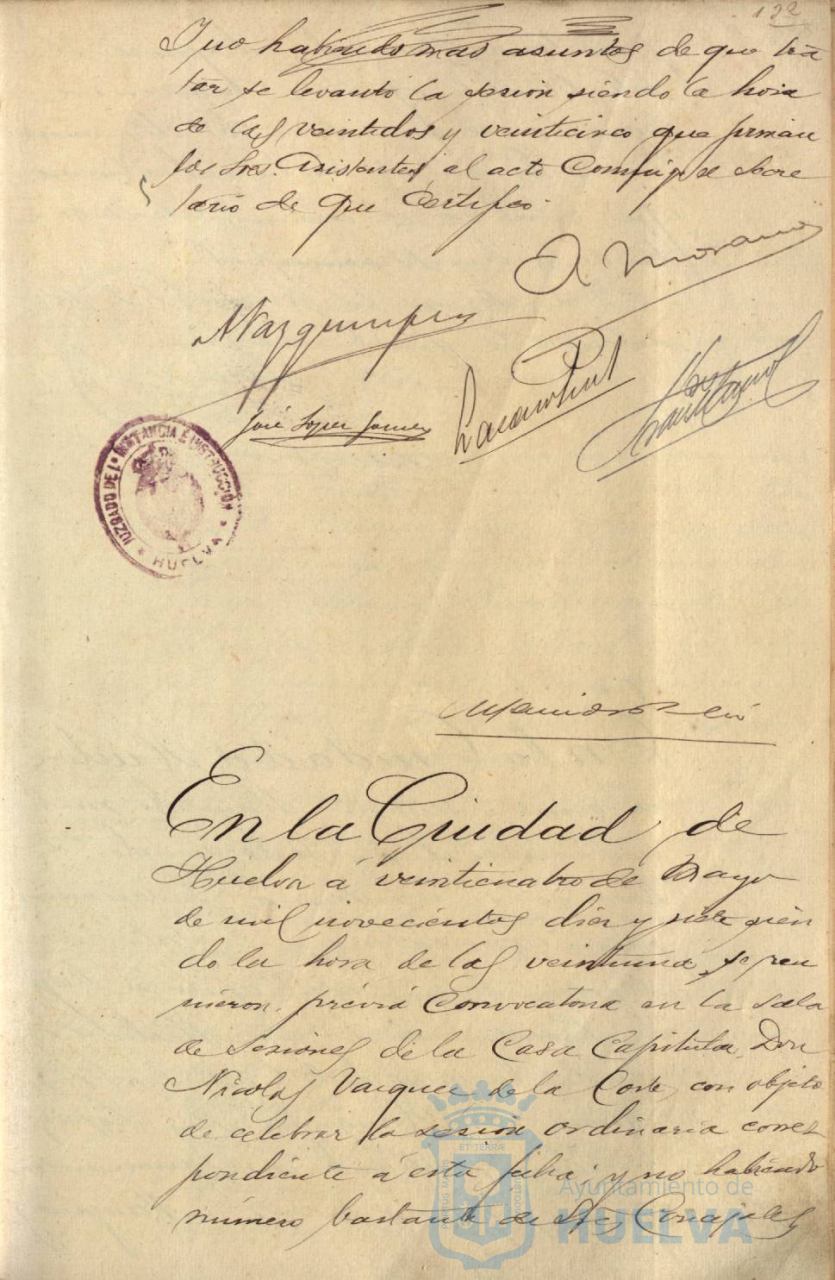 132
Y no habiendo mas asuntos de que tra
tar se levantó la sesión siendo la hora
de las veintidos y veinticinco que firman
los Sres. Asistentes al acto conmigo el Secre
tario de que certifico.
A. Morano
José Lopez Gomez
JUZGADO DE 1ª INSTANCIA E INSTRUCCIÓN
* HUELVA *
En la Ciudad de
Huelva á veinticuatro de Mayo
de mil novecientos diez y siete sien
do la hora de las veintiuna, se reu
nieron, prévia convocatoria en la sala
de sesiones de la Casa Capitular, Don
Nicolas Vazquez de la Corte, con objeto
de celebrar la sesión ordinaria corres
pondiente á esta fecha; y no habiendo
número bastante de Sres. Concejales
Ayuntamiento de
HUELVA